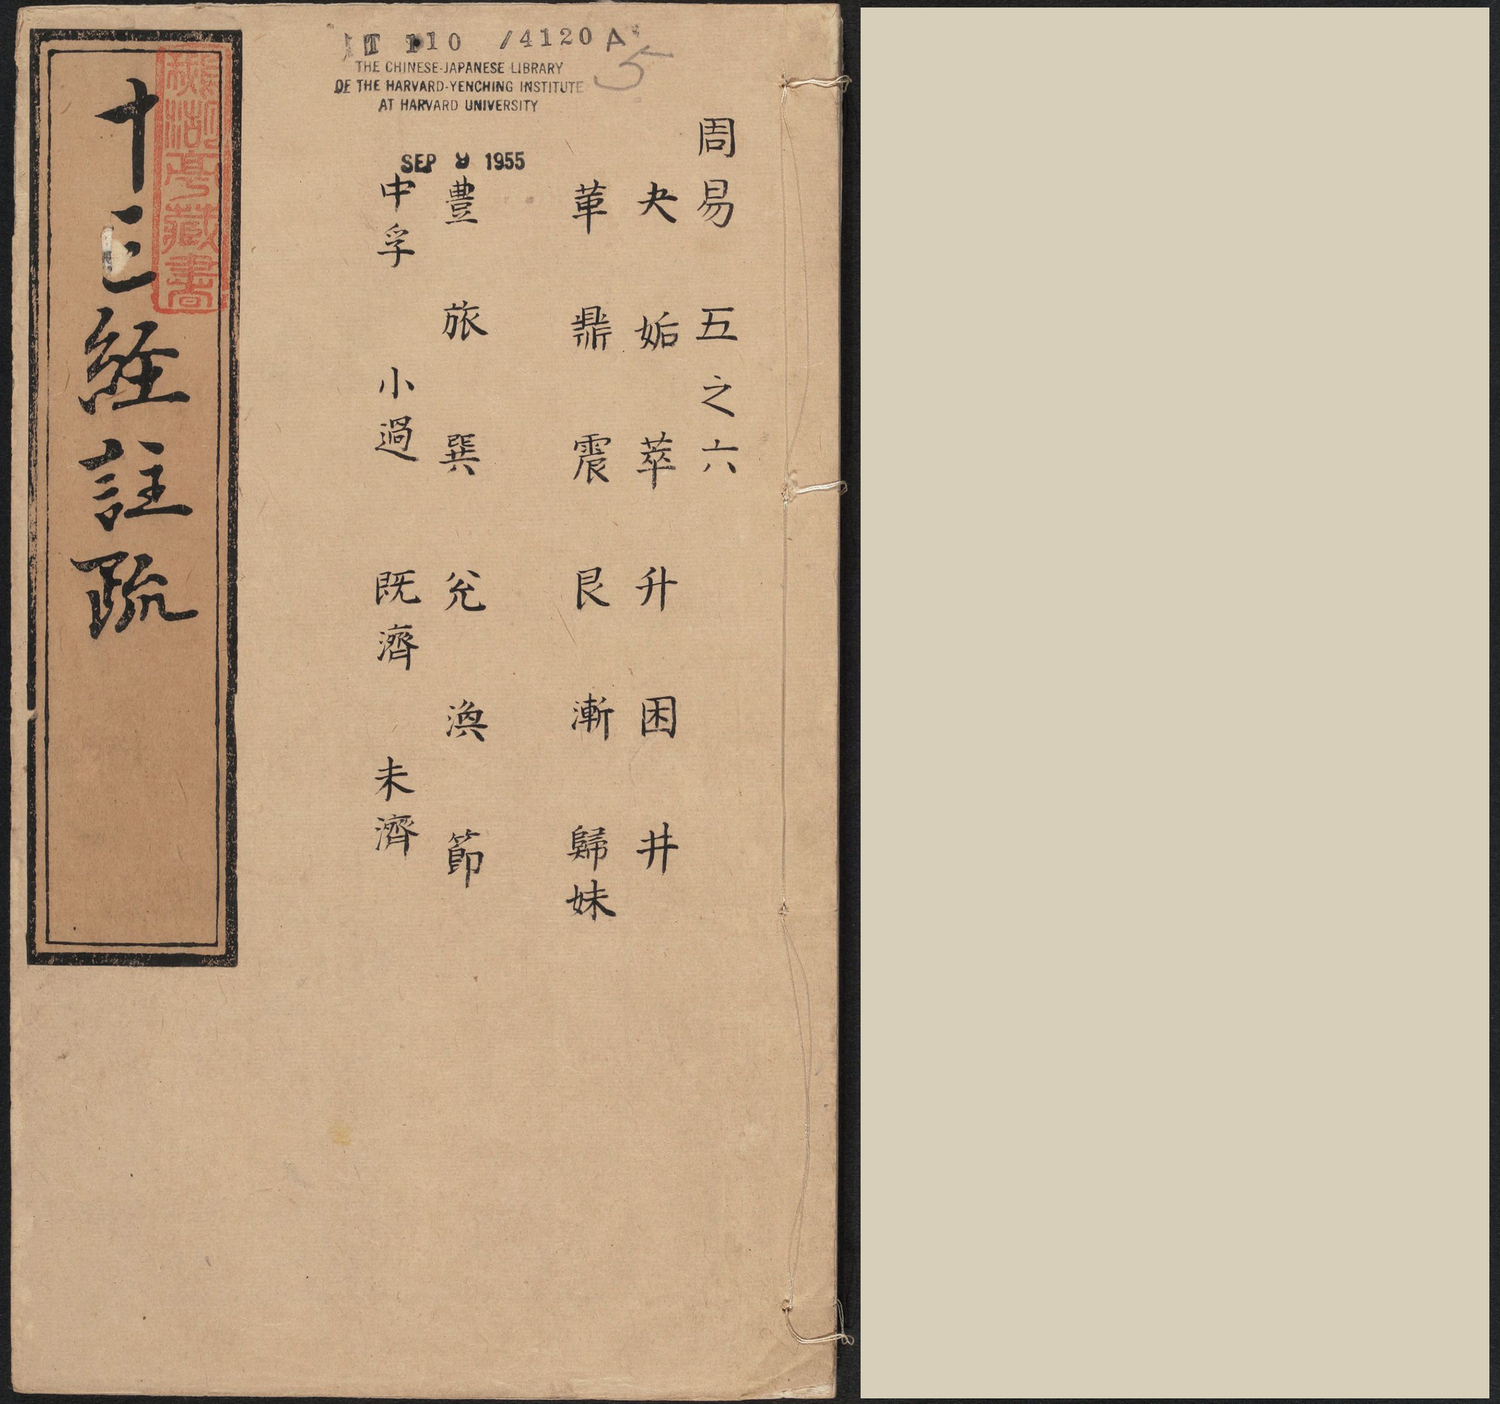 T 110 /4120 A
5
THE CHINESE-JAPANESE LIBRARY
OF THE HARVARD-YENCHING INSTITUTE
AT HARVARD UNIVERSITY
SEP 9 1955
周易 五之六
夬 姤 萃 升 困 井
革 鼎 震 艮 漸 歸妹
豊 旅 巽 兊 渙 節
中孚 小過 既濟 未濟
十三經註疏
鵝湖亭藏書